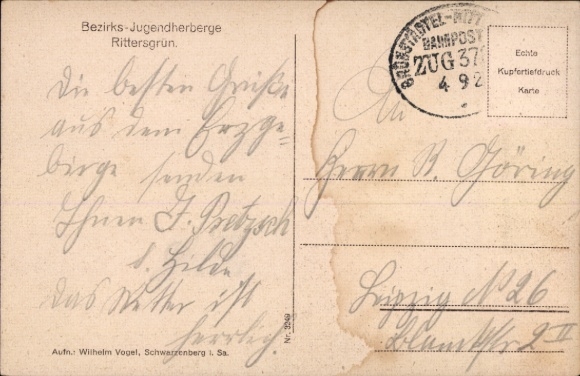 Bezirks-Jugendherberge
Rittersgrün.
Die besten Grüße
aus dem Erzge-
birge senden
Ihnen J. Pretzsch
u. Hilde
Das Wetter ist
herrlich.
Aufn.: Wilhelm Vogel, Schwarzenberg i. Sa.
Nr. 3249
BAHNPOST
ZUG 37
4 9 2
Echte
Kupfertiefdruck
Karte
An
Herrn R. Göring
Leipzig No 26
2 II